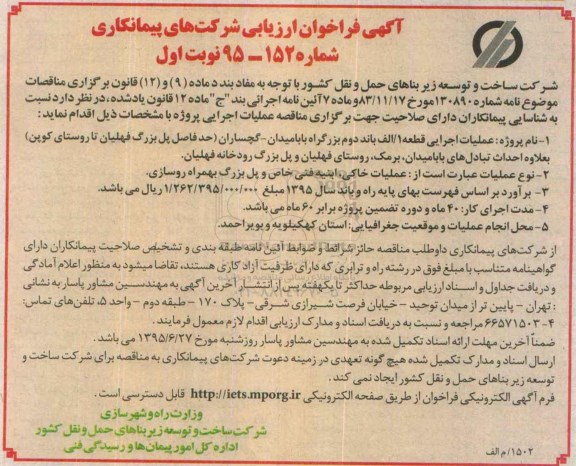 آگهی فراخوان ارزیابی شرکت‌های پیمانکاری
شماره ۱۵۲ – ۹۵ نوبت اول
شرکت ساخت و توسعه زیر بناهای حمل و نقل کشور با توجه به مفاد بند د ماده (۹) و (۱۲) قانون برگزاری مناقصات
موضوع نامه شماره ۱۳۰۸۹۰ مورخ ۸۳/۱۱/۱۷ و ماده ۷ آئین نامه اجرائی بند "ج" ماده ۱۲ قانون یادشده، در نظر دارد نسبت
به شناسایی پیمانکاران دارای صلاحیت جهت برگزاری مناقصه عملیات اجرایی پروژه با مشخصات ذیل اقدام نماید:
۱- نام پروژه: عملیات اجرایی قطعه ۱/الف باند دوم بزرگراه بابامیدان-گچساران (حد فاصل پل بزرگ فهلیان تا روستای کوپن)
بعلاوه احداث تبادل‌های بابامیدان، برمک، روستای فهلیان و پل بزرگ رودخانه فهلیان.
۲- نوع عملیات عبارت است از: عملیات خاکی، ابنیه فنی خاص و پل بزرگ بهمراه روسازی.
۳- برآورد بر اساس فهرست بهای پایه راه و باند سال ۱۳۹۵ مبلغ ۱/۲۶۲/۳۹۵/۰۰۰/۰۰۰ ریال می باشد.
۴- مدت اجرای کار: ۴۰ ماه و دوره تضمین پروژه برابر ۶۰ ماه می باشد.
۵- محل انجام عملیات و موقعیت جغرافیایی: استان کهکیلویه و بویراحمد.
از شرکت‌های پیمانکاری داوطلب مناقصه حائز شرائط و ضوابط آئین نامه طبقه بندی و تشخیص صلاحیت پیمانکاران دارای
گواهینامه متناسب با مبلغ فوق در رشته راه و ترابری که دارای ظرفیت آزاد کاری هستند، تقاضا میشود به منظور اعلام آمادگی
و دریافت جداول و اسناد ارزیابی مربوطه حداکثر تا یکهفته پس از انتشار آخرین آگهی به مهندسین مشاور پاسار به نشانی
: تهران - پایین تر از میدان توحید - خیابان فرصت شیرازی شرقی- پلاک ۱۷۰ - طبقه دوم - واحد ۵، تلفن‌های تماس:
۴-۶۶۵۷۱۵۰۳ مراجعه و نسبت به دریافت اسناد و مدارک ارزیابی اقدام لازم معمول فرمایند.
ضمناً آخرین مهلت ارائه اسناد تکمیل شده به مهندسین مشاور پاسار روزشنبه مورخ ۱۳۹۵/۶/۲۷ می باشد.
ارسال اسناد و مدارک تکمیل شده هیچ گونه تعهدی در زمینه دعوت شرکت‌های پیمانکاری به مناقصه برای شرکت ساخت و
توسعه زیر بناهای حمل و نقل کشور ایجاد نمی کند.
فرم آگهی الکترونیکی فراخوان از طریق صفحه الکترونیکی http://iets.mporg.ir قابل دسترسی است.
وزارت راه و شهرسازی
شرکت ساخت و توسعه زیر بناهای حمل و نقل کشور
اداره کل امور پیمان‌ها و رسیدگی فنی
۱۵۰۲/م الف